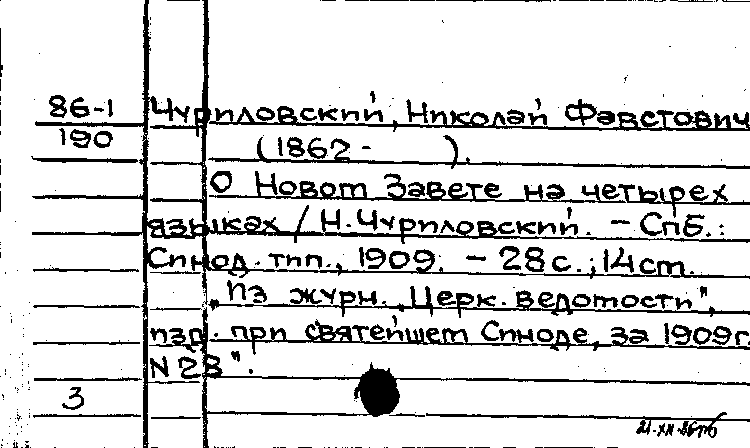 86-1 Чуриловский, Николай Фавстович
190 (1862- ).
О Новом Завете на четырех
языках / Н. Чуриловский. - Спб.:
Синод. тип., 1909. - 28 с.; 14 см.
„Из журн. „Церк. ведомости",
изд. при святейшем Синоде, за 1909г.
N 28".
3